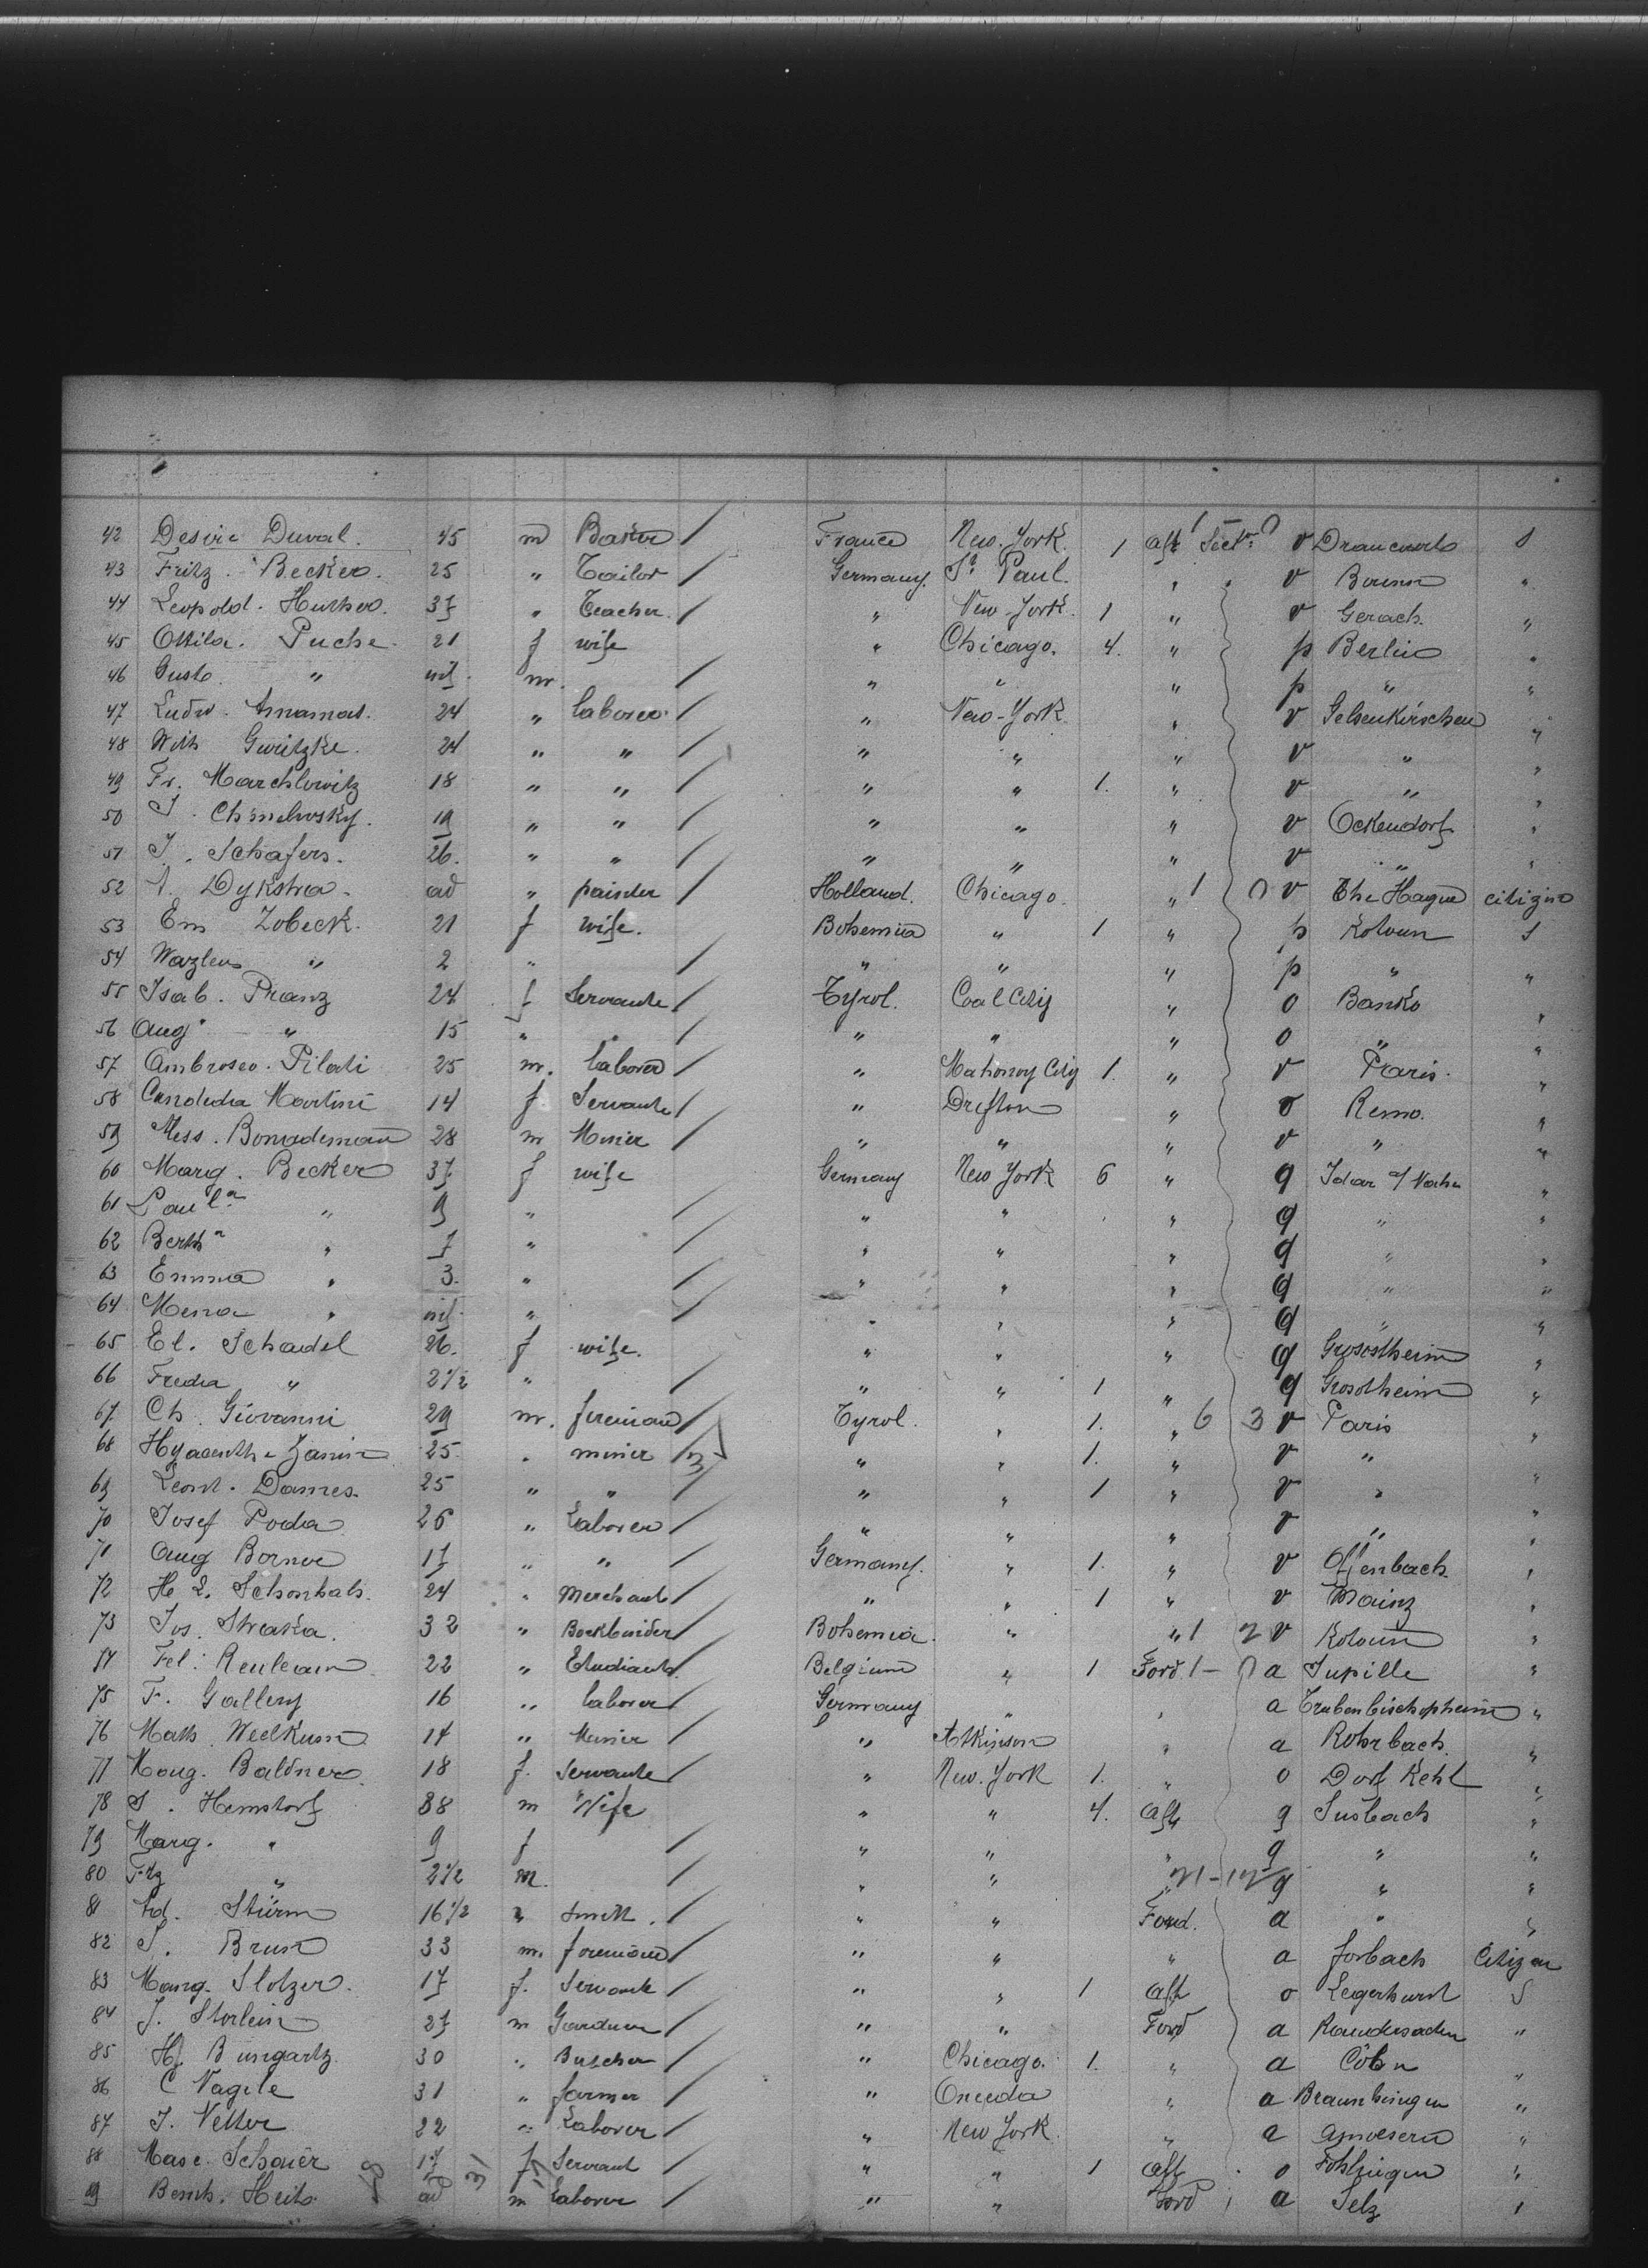 42 Desire Duval. 45 m Baker / France New. York. 1 aft Sectn: v Drancourt S
43 Fritz. Becker. 25 " Tailor / Germany. St Paul. " " v "
44 Leopold. Huther. 37 " Teacher. / " New York. 1 " v Gerach. "
45 Ottila. Puche. 21 f wife " Chicago. 4. " p Berlin "
46 Gust. " inf. m. / " " " p " "
47 Ludw. 24 " laborer / " New-York " v Gelsenkirschen "
48 Gwitzke. 24 " " / " " " v " "
49 Fr. Marchlowitz 18 " " / " " 1. " v " "
50 19 " " / " " " v Ockendorf "
51 J. Schafers. 26. " " / " " " v " "
52 Dykstra. ad " painter / Holland. Chicago. " 1 v The Hague citizen
53 Em Zobeck. 21 f wife. Bohemia " 1 " p Koloun S
54 " 2 " / " " " p " "
55 Isab. Pranz 24 f Servante / Tyrol. Coal City " o Banko "
56 Aug. " 15 " " / " " " o " "
57 Ambroseo. Pilati 25 m. laborer / " Mahonoy City 1. " v Paris. "
58 Candida Martini 14 f Servante / " Drifton " o Remo. "
59 Mess. 28 m Minier / " " " v " "
60 Marg. Becker 37 f wife Germany New York 6 " q Idar a/ Nahe "
61 Paula " 9 " / " " " q " "
62 Bertha " 7 " / " " " q " "
63 Emma " 3. " / " " " q " "
64 Mena " inf. " / " " " q " "
65 El. Schadel 26. f wife. " " " q Grosostheim "
66 Freda " 2 1/2 " / " " 1 " q Grosotheim "
67 Ch. Giovanni 29 m. fireman / Tyrol. " 1. " 6 3 v Paris "
68 Hyacenthe Zanin 25. " minier / " " 1. " v " "
69 Leon. Dames. 25 " " / " " 1 " v " "
70 Josef Poda 26 " Laborer / " " " v " "
71 Aug Borner 17 " " / Germany. " 1. " v Offenbach. "
72 H L. Schonhals. 24 " Merchant / " " 1 " v Mainz "
73 Jos. Straka. 32 " Bookbinder / Bohemia. " " 1 2 v Koloun "
74 Fel. Reuleaun 22 " Etudiant / Belgium " 1 Ford 1 - a Jupille "
75 F. Gallery 16 " laborer / Germany " " a Trubenbischopheim "
76 Math. Weelkum 14 " Minier / " Atkinson " a Rohrbach "
77 Marg. Baldner 18 f. Servante / " New. York 1. " o Dorf Kehl "
78 S. Hemstorf 38 m Wife " " 4. Aft q Susbach "
79 Marg. " 9 f / " " " q " "
80 Frtz " 2 1/2 m. / " " " 21 - 12 q " "
81 Ed. Stürm 16 1/2 " smith. / " " Ford. a " "
82 J. Brun 33 m. foreman / " " " a forbach Citizen
83 Marg. Slotzer. 17 f. Servante / " " 1 Aft o Legerhurst S
84 J. Storlein 27 m Gardner / " " Ford a Randersacker "
85 H. Bungartz. 30 " Butcher / " Chicago. 1. " a Cöln "
86 C Nagele 31 " farmer / " Oneida " a Braunlingen "
87 J. Vetter 22 " Laborer / " New York " a "
88 Schauer 17 f Servant / " " 1 Aft o "
89 Bernh. Heib. ad m Laborer / " " Ford a Selz "